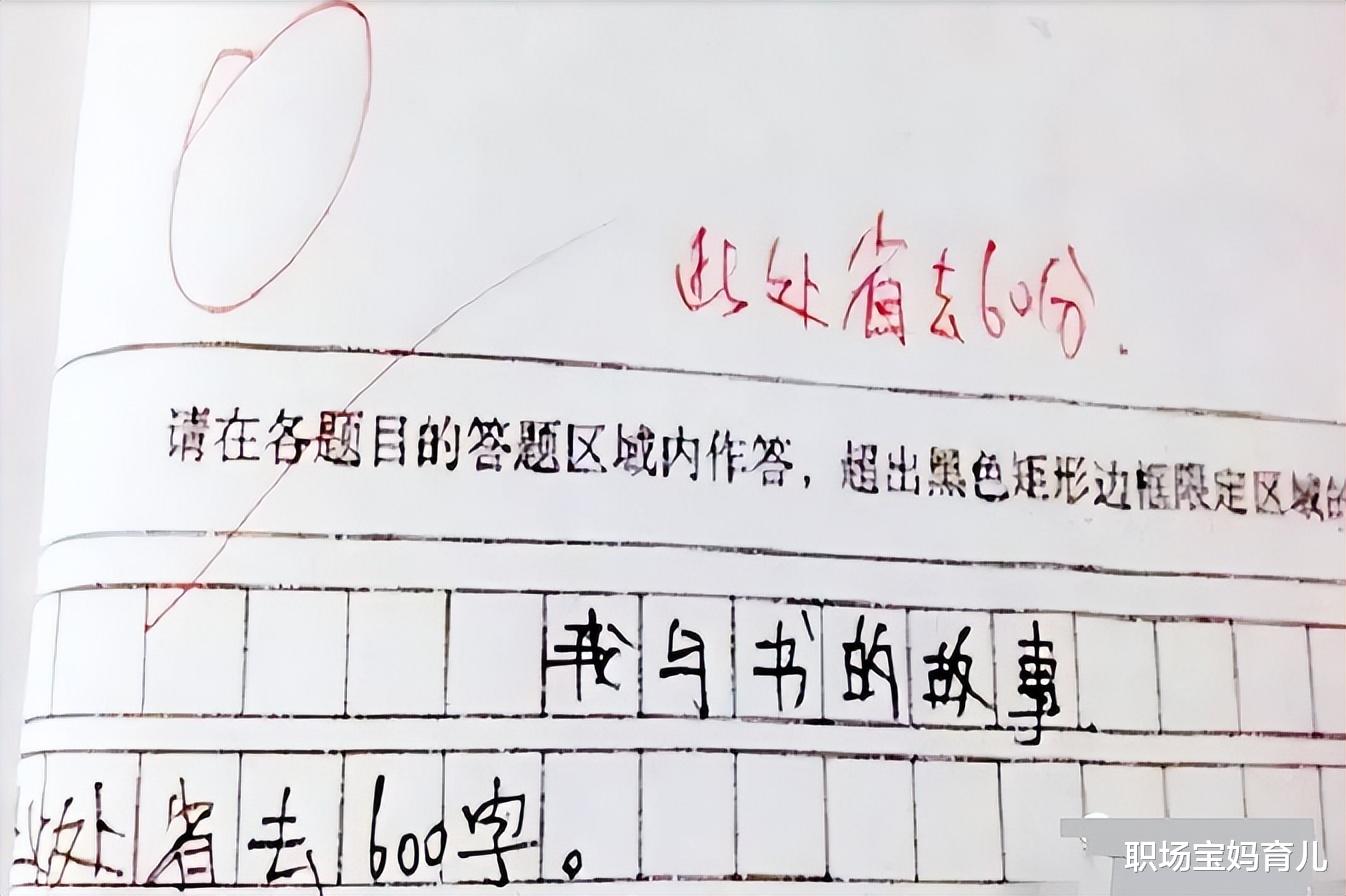 此处省去60分.
请在各题目的答题区域内作答，超出黑色矩形边框限定区域的
我与书的故事
此处省去600字。
职场宝妈育儿